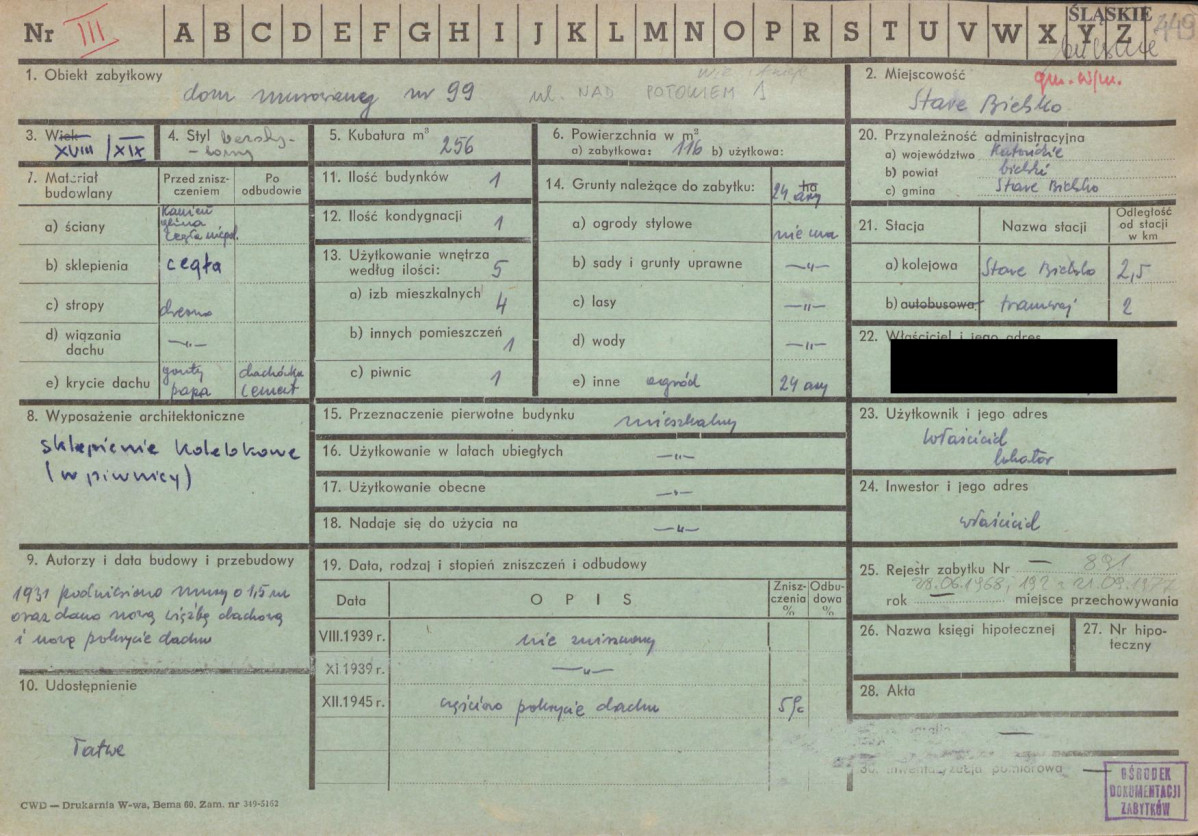 Nr III A B C D E F G H I J K L M N O P R S T U V W X Y Z ŚLĄSKIE 449
bielskie
1. Obiekt zabytkowy
dom murowany nr 99 ul. NAD POTOKIEM 1
2. Miejscowość
Stare Bielsko
3. Wiek
XVIII / XIX
4. Styl
5. Kubatura m³
256
6. Powierzchnia w m²
a) zabytkowa: 116 b) użytkowa:
7. Materiał budowlany
Przed zniszczeniem
Po odbudowie
a) ściany
kamień
glina
cegła niepal.
b) sklepienia cegła
c) stropy drewno
d) wiązania dachu —„—
e) krycie dachu
gonty
papa
dachówka
cement
8. Wyposażenie architektoniczne
sklepienie kolebkowe
(w piwnicy)
9. Autorzy i data budowy i przebudowy
1931 podniesiono mury o 1,5 m
oraz dano nową więźbę dachową
i nowe pokrycie dachu
10. Udostępnienie
łatwe
11. Ilość budynków 1
12. Ilość kondygnacji 1
13. Użytkowanie wnętrza
według ilości: 5
a) izb mieszkalnych 4
b) innych pomieszczeń 1
c) piwnic 1
14. Grunty należące do zabytku: 24 ha ary
a) ogrody stylowe nie ma
b) sady i grunty uprawne —„—
c) lasy —„—
d) wody —„—
e) inne ogród 24 ary
15. Przeznaczenie pierwotne budynku mieszkalny
16. Użytkowanie w latach ubiegłych —„—
17. Użytkowanie obecne —„—
18. Nadaje się do użycia na —„—
19. Data, rodzaj i stopień zniszczeń i odbudowy
Data
O P I S
Zniszczenia %
Odbudowa %
VIII.1939 r. nie zniszczony
XI 1939 r. —„—
XII.1945 r. częściowo pokrycie dachu 5%
20. Przynależność administracyjna
a) województwo Katowickie
b) powiat bielski
c) gmina Stare Bielsko
21. Stacja
Nazwa stacji
Odległość od stacji w km
a) kolejowa Stare Bielsko 2,5
b) autobusowa tramwaj 2
22. Właściciel i jego adres
23. Użytkownik i jego adres
właściciel
lokator
24. Inwestor i jego adres
właściciel
25. Rejestr zabytku Nr — 891
28.06.1968; 192 z 21.09.1977
rok miejsce przechowywania
26. Nazwa księgi hipotecznej
27. Nr hipoteczny
28. Akta
30. Inwentaryzacja pomiarowa —
OŚRODEK
DOKUMENTACJI
ZABYTKÓW
CWD — Drukarnia W-wa, Bema 60. Zam. nr 349-5162